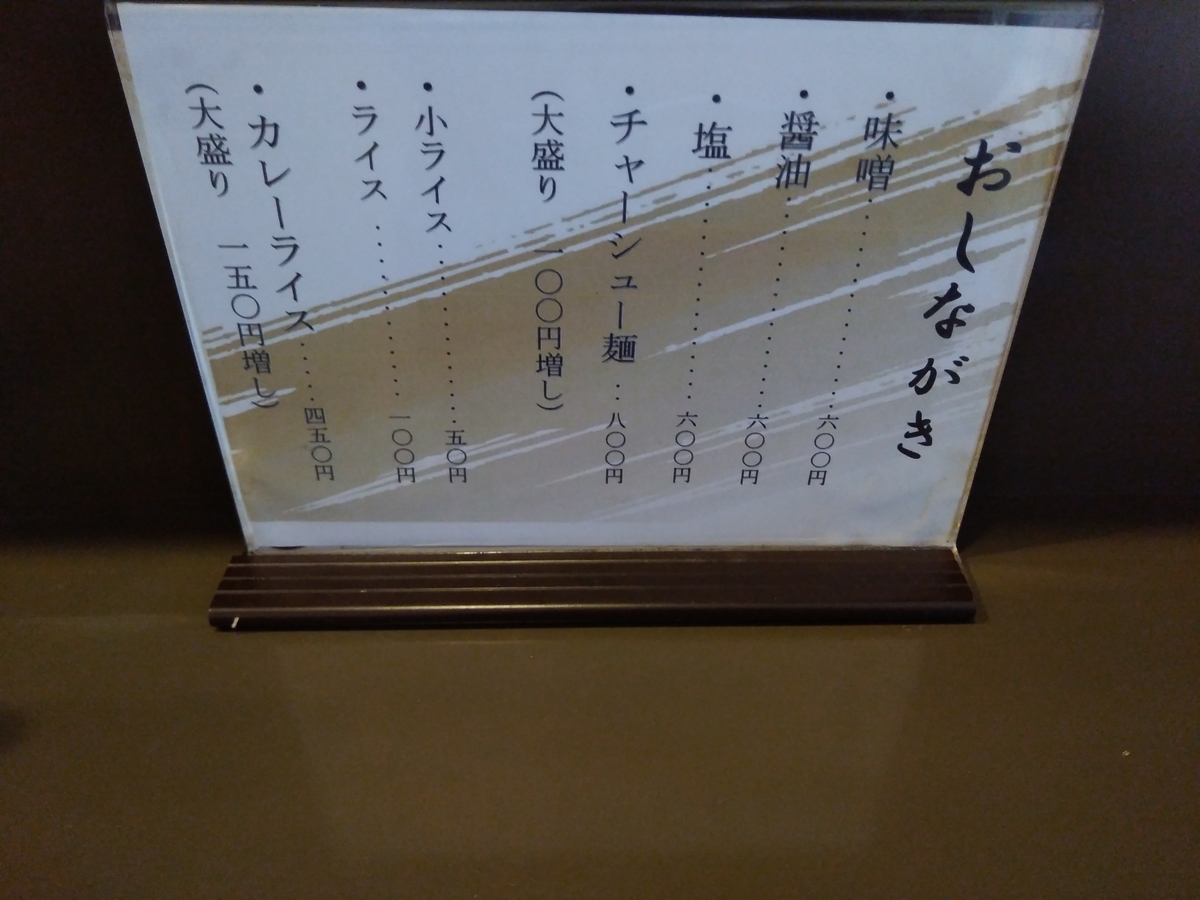 おしながき
・味噌……………六〇〇円
・醤油……………六〇〇円
・塩……………六〇〇円
・チャーシュー麺‥八〇〇円
(大盛り 一〇〇円増し)
・小ライス……………五〇円
・ライス……………一〇〇円
・カレーライス……四五〇円
(大盛り 一五〇円増し)